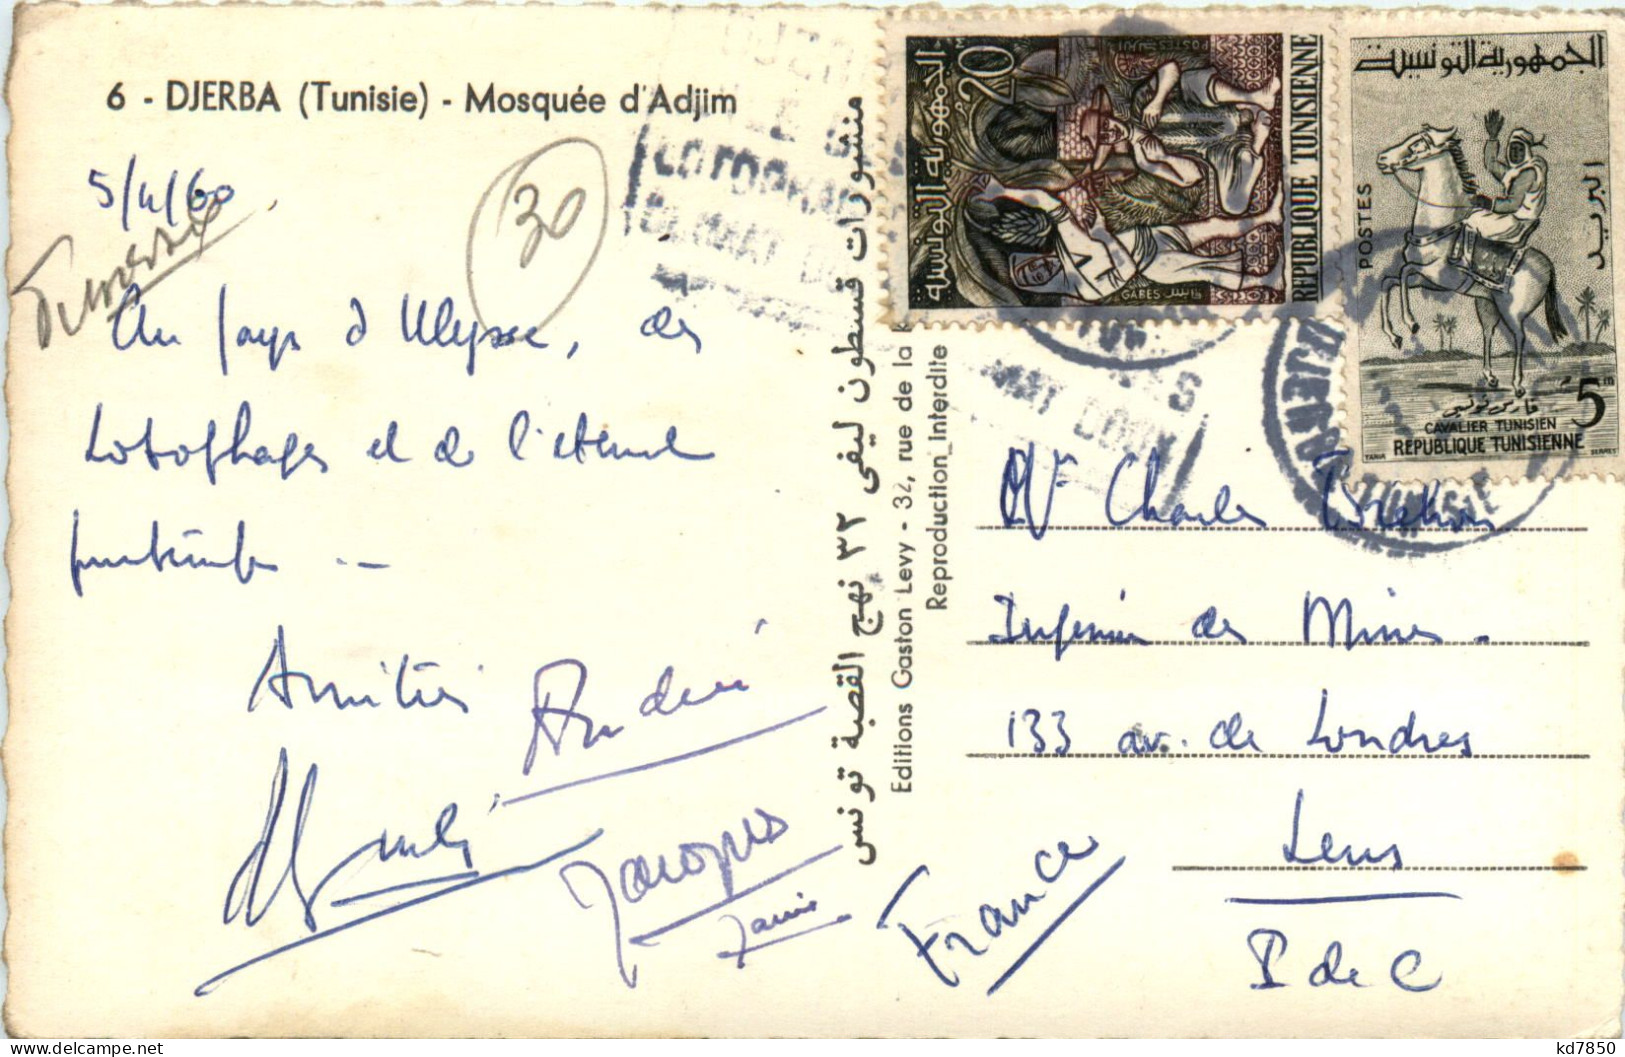 6 - DJERBA (Tunisie) - Mosquée d'Adjim
5/4/60
30
Au pays d'Ulysse, des
Lotophages et de l'éternel
printemps ...
Amitiés
André
Jacques
منشورات قسطون ليفي ٣٢ نهج القصبة تونس
Editions Gaston Levy - 32, rue de la K
Reproduction Interdite
الجمهورية التونسية
20
POSTES
GABES
قابس
REPUBLIQUE TUNISIENNE
الجمهورية التونسية
POSTES
البريد
5m
فارس تونسي
CAVALIER TUNISIEN
REPUBLIQUE TUNISIENNE
DJERBA
TUNISIE
LOTOPHAGES
CLIMAT DOUX
CLIMAT DOUX
Mr Charles
Ingénieur des Mines
133 av. de Londres
Lens
P de C
France
kd7850